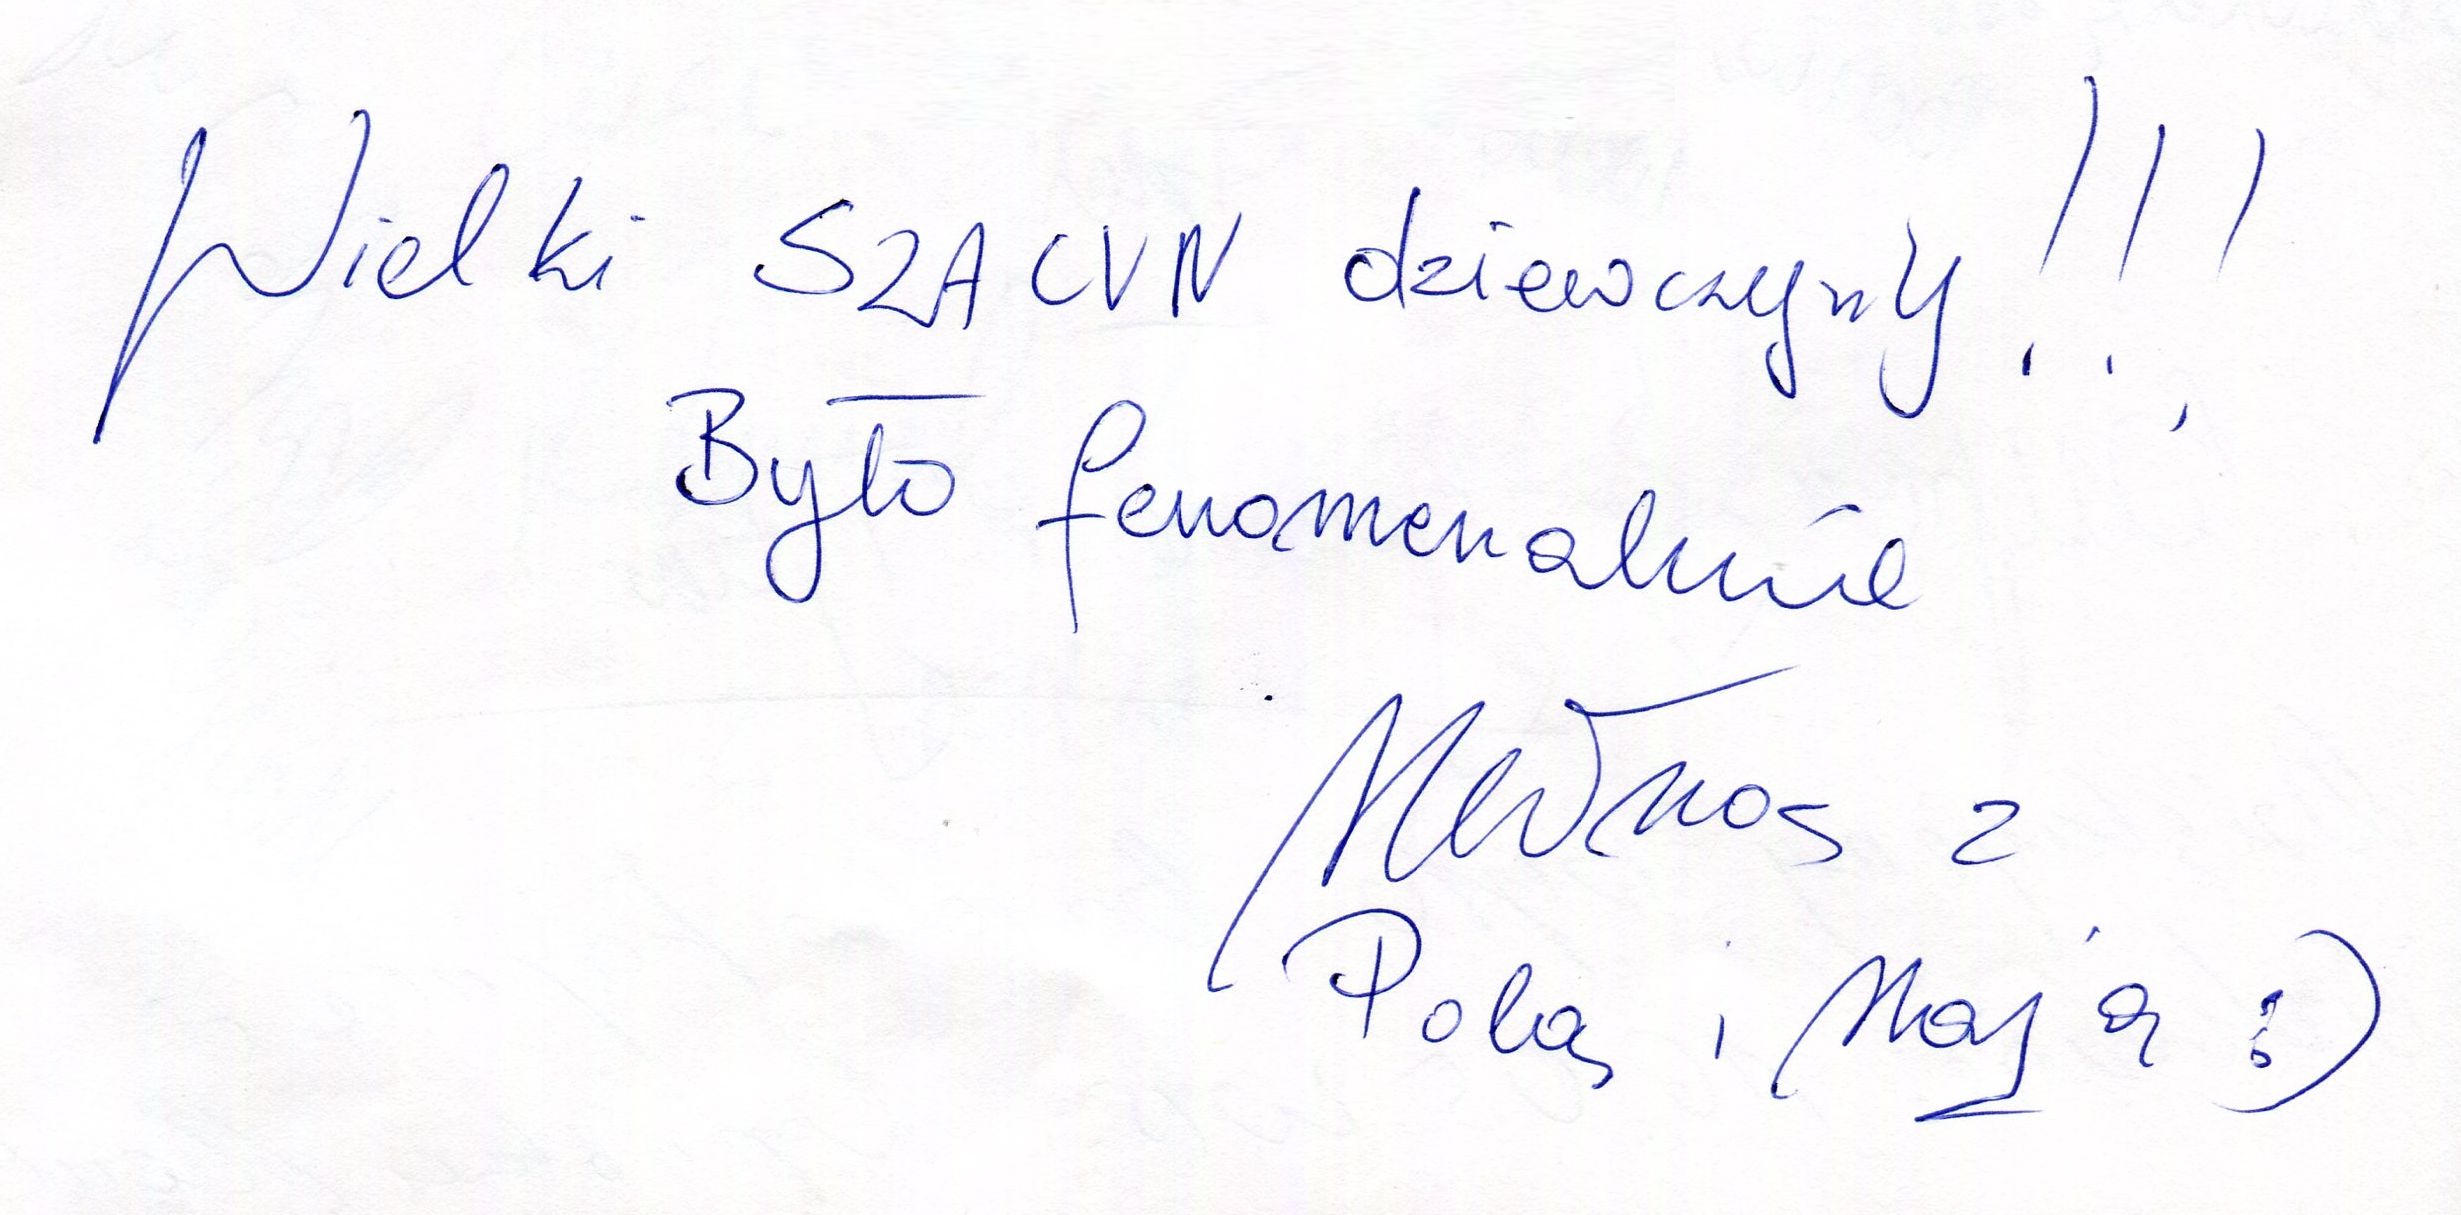 Wielki SZACUN dziewczyny!!!
Było fenomenalnie
z
Polą i Mają :)